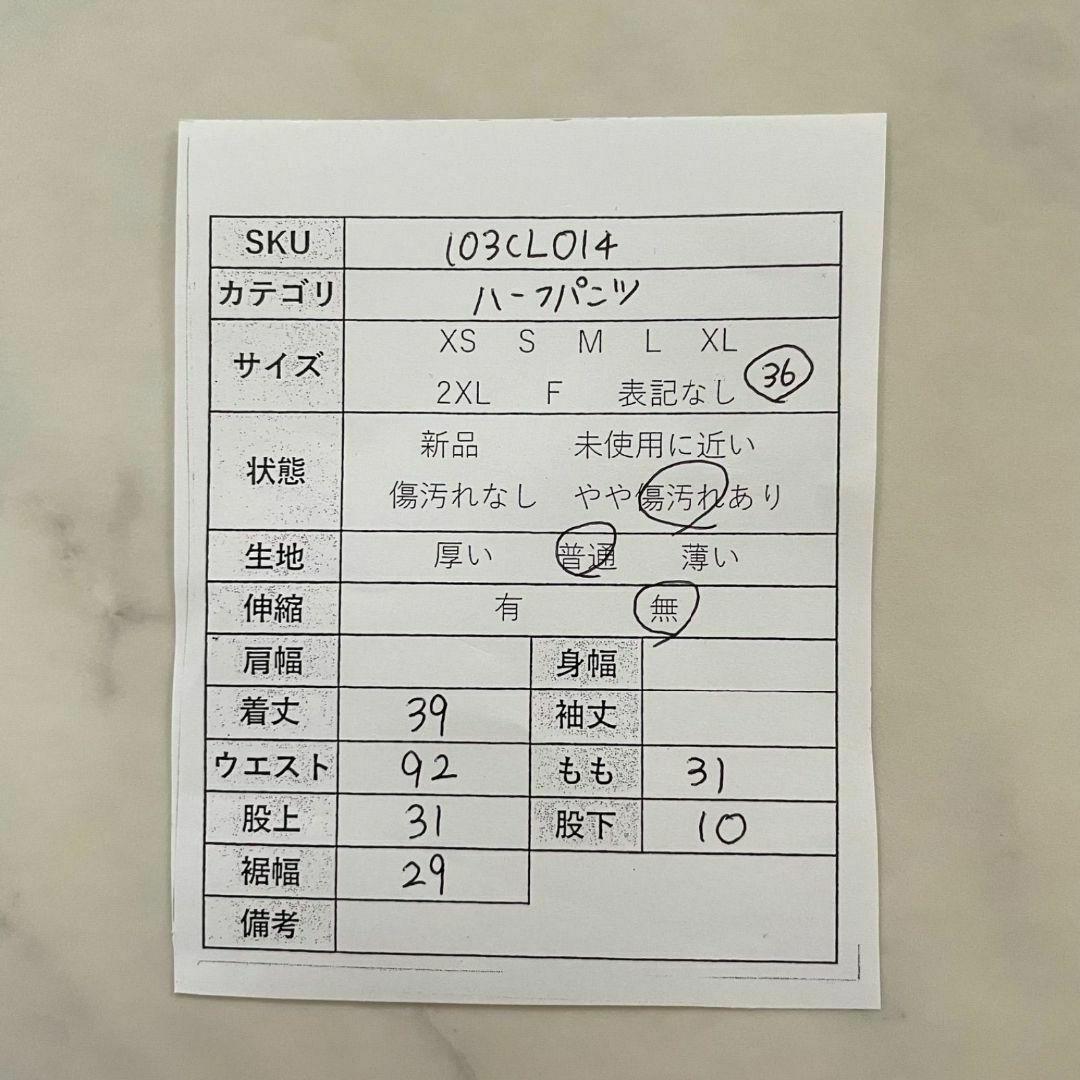 SKU 103CL014
カテゴリ ハーフパンツ
サイズ XS S M L XL
2XL F 表記なし 36
状態 新品 未使用に近い
傷汚れなし やや傷汚れあり
生地 厚い 普通 薄い
伸縮 有 無
肩幅 身幅
着丈 39 袖丈
ウエスト 92 もも 31
股上 31 股下 10
裾幅 29
備考